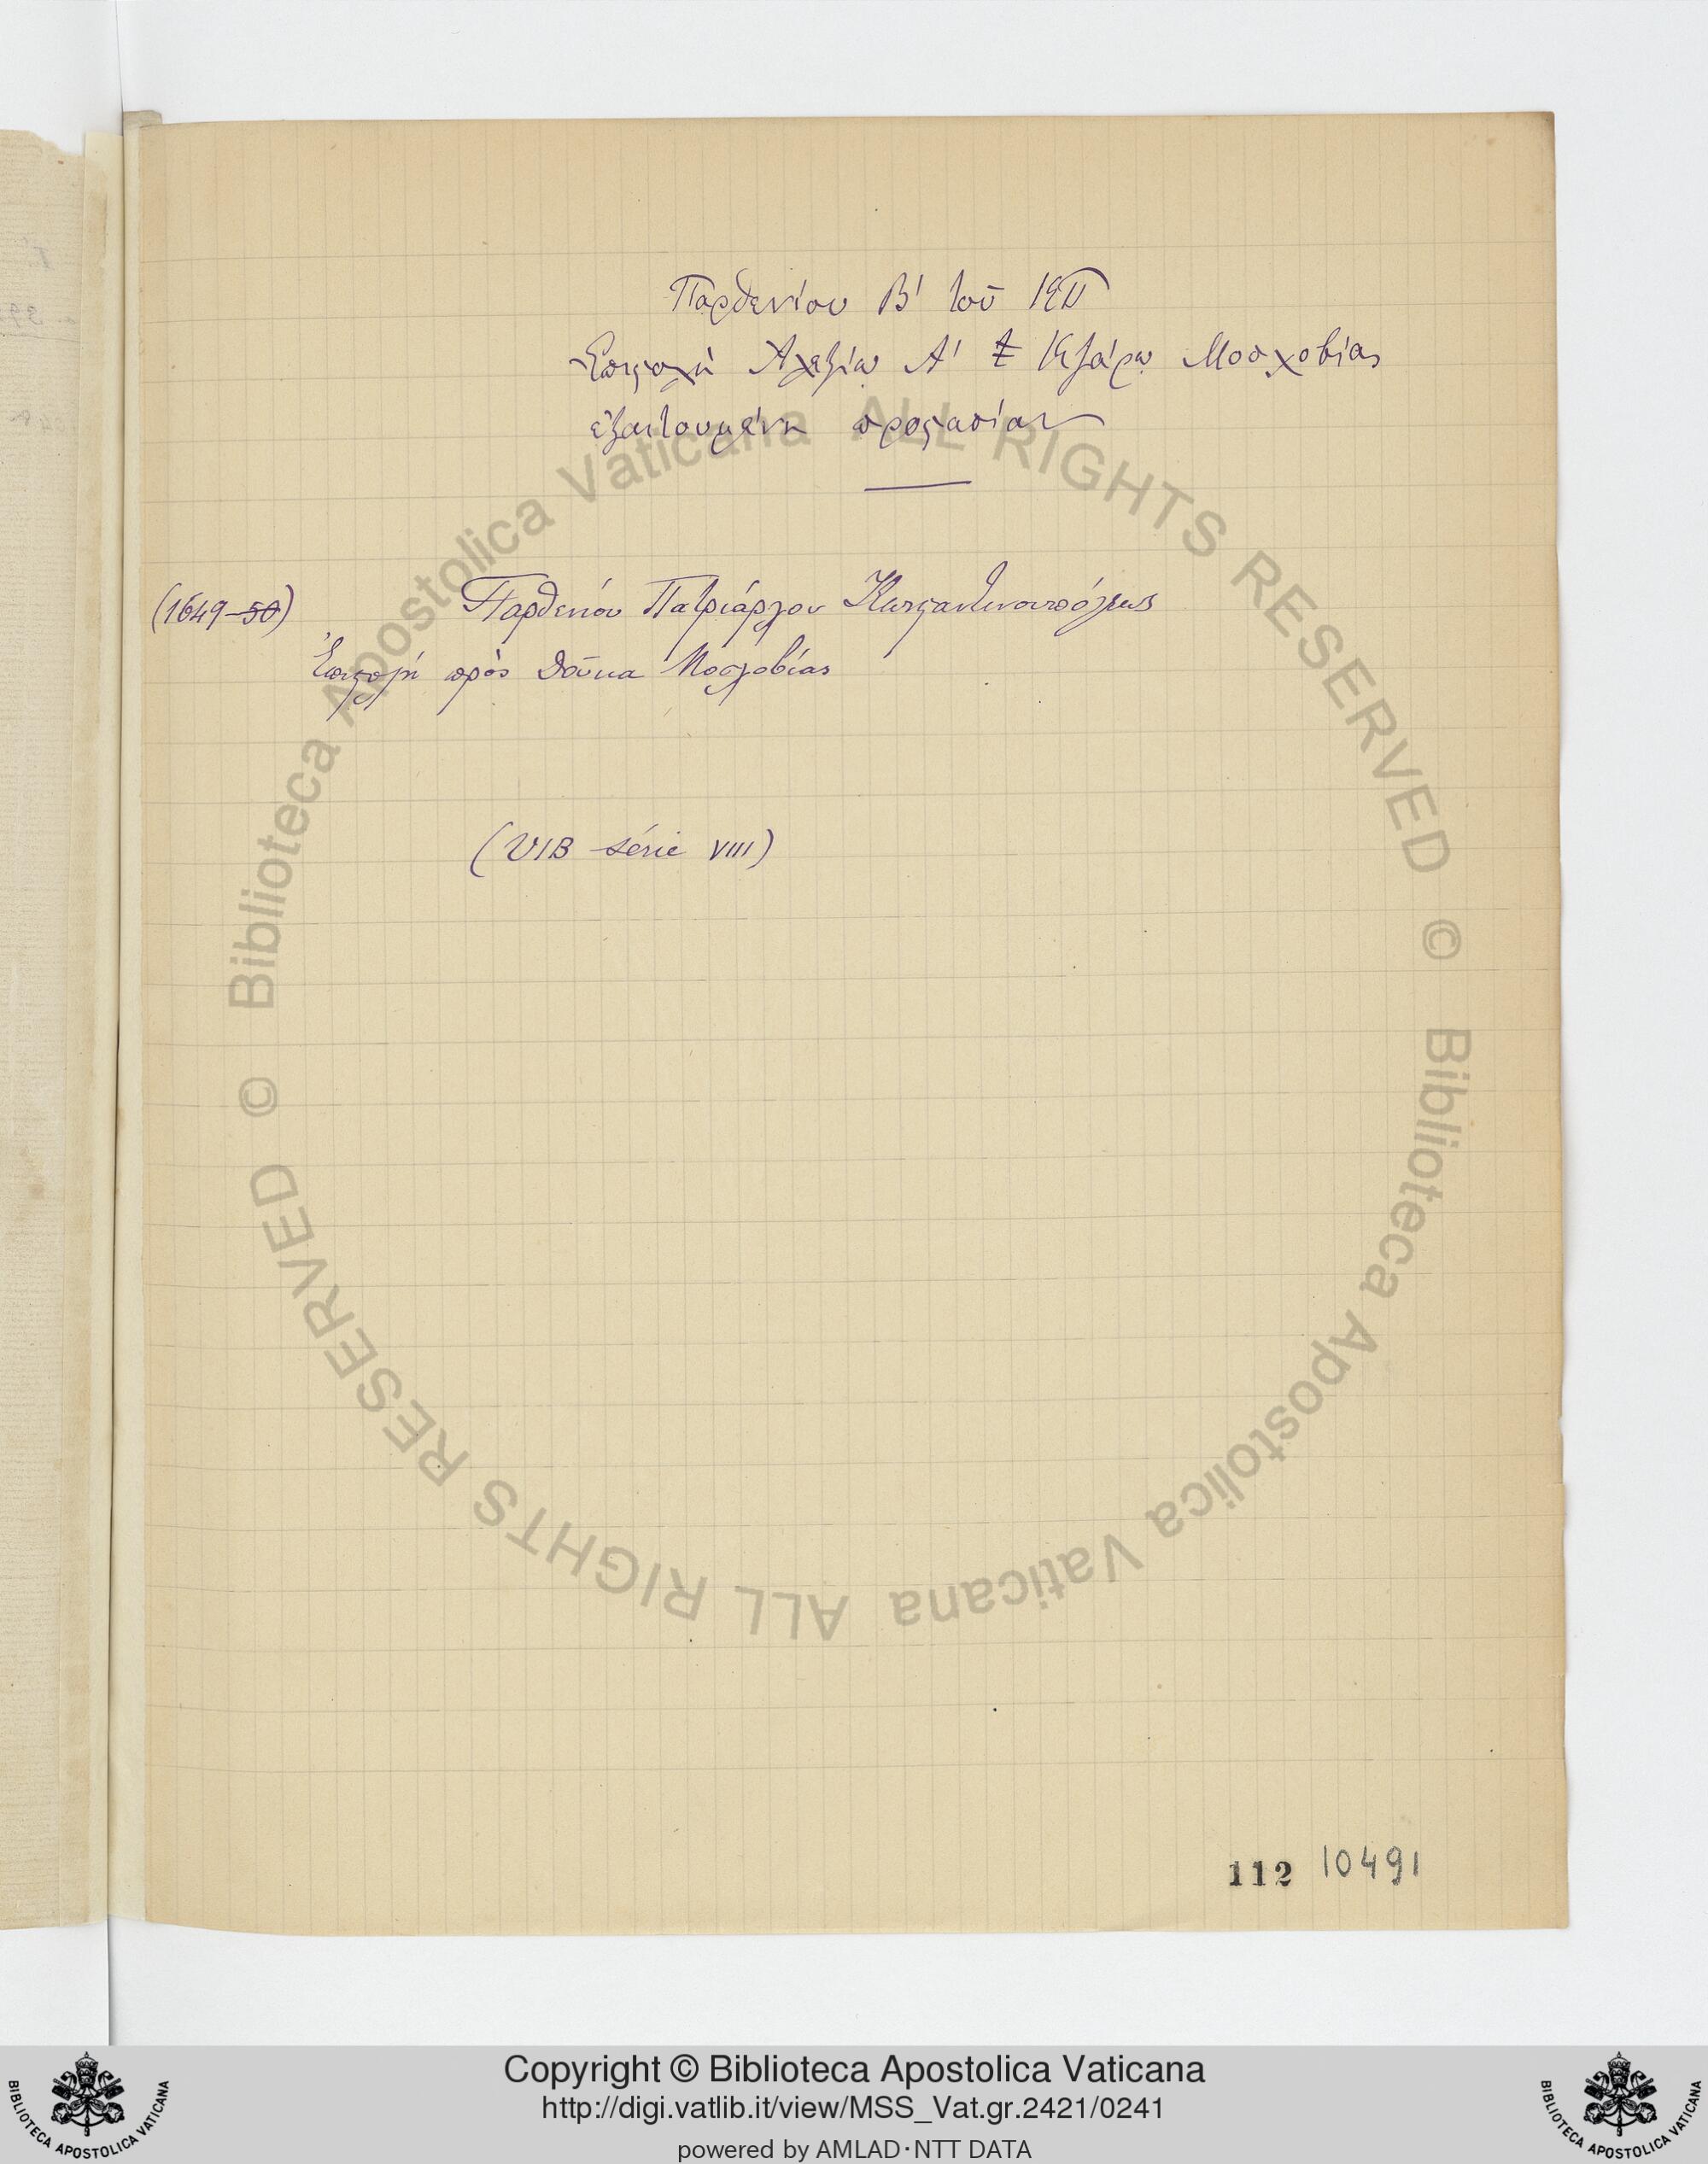 Παρθενίου Β' τοῦ ΚΠ
Ἐπιστολὴ Ἀλεξίῳ Α' Κζάρῳ Μοσχοβίας
ἐξαιτουμένη προστασίαν
(1649-50)
Παρθενίου Πατριάρχου Κωνσταντινουπόλεως
Ἐπιστολὴ πρὸς Δοῦκα Μοσχοβίας
(VIB série VIII)
112 10491
© Biblioteca Apostolica Vaticana ALL RIGHTS RESERVED
© Biblioteca Apostolica Vaticana ALL RIGHTS RESERVED
BIBLIOTECA APOSTOLICA VATICANA
Copyright © Biblioteca Apostolica Vaticana
http://digi.vatlib.it/view/MSS_Vat.gr.2421/0241
powered by AMLAD·NTT DATA
BIBLIOTECA APOSTOLICA VATICANA